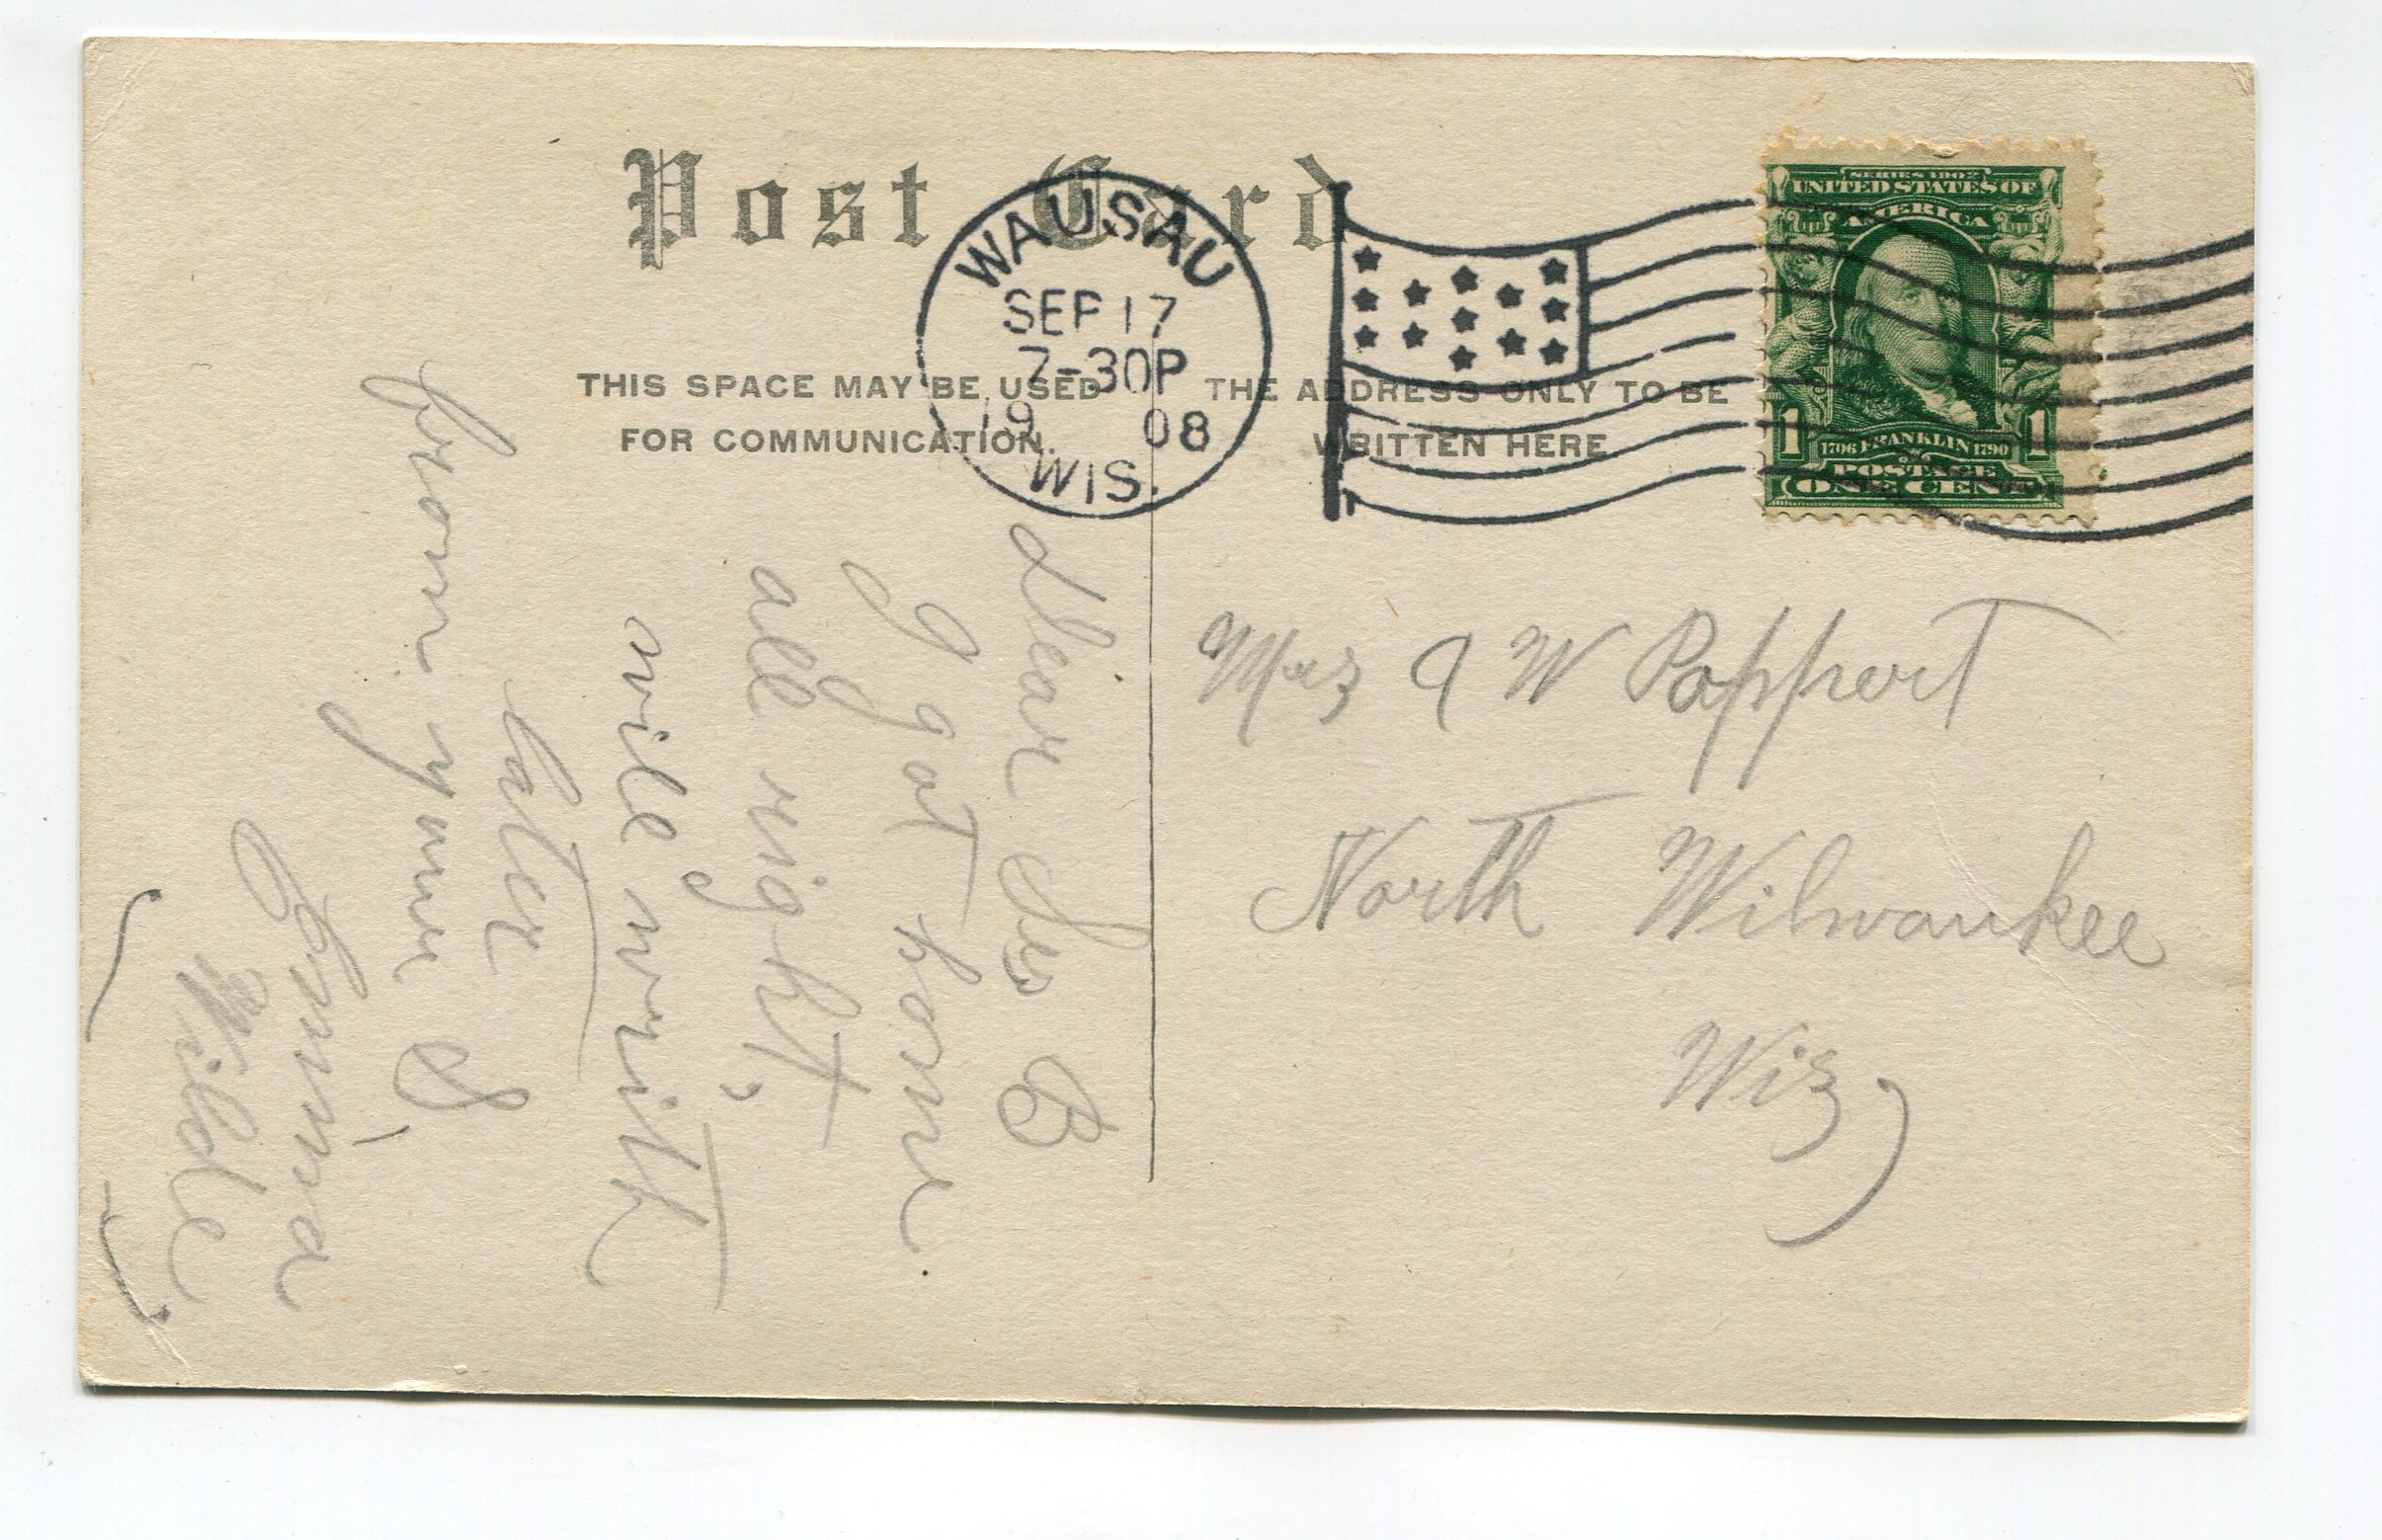 Post Card
WAUSAU
SEP 17
7-30P
19 08
WIS.
SERIES 1902
UNITED STATES OF
AMERICA
1 1706 FRANKLIN 1790 1
POSTAGE
ONE CENT
THIS SPACE MAY BE USED
FOR COMMUNICATION.
THE ADDRESS ONLY TO BE
WRITTEN HERE
Dear Sis B
I got home
all right,
will writh
later
from your S
Emma
Wilde
W Poppert
North Wilwaukee
Wis